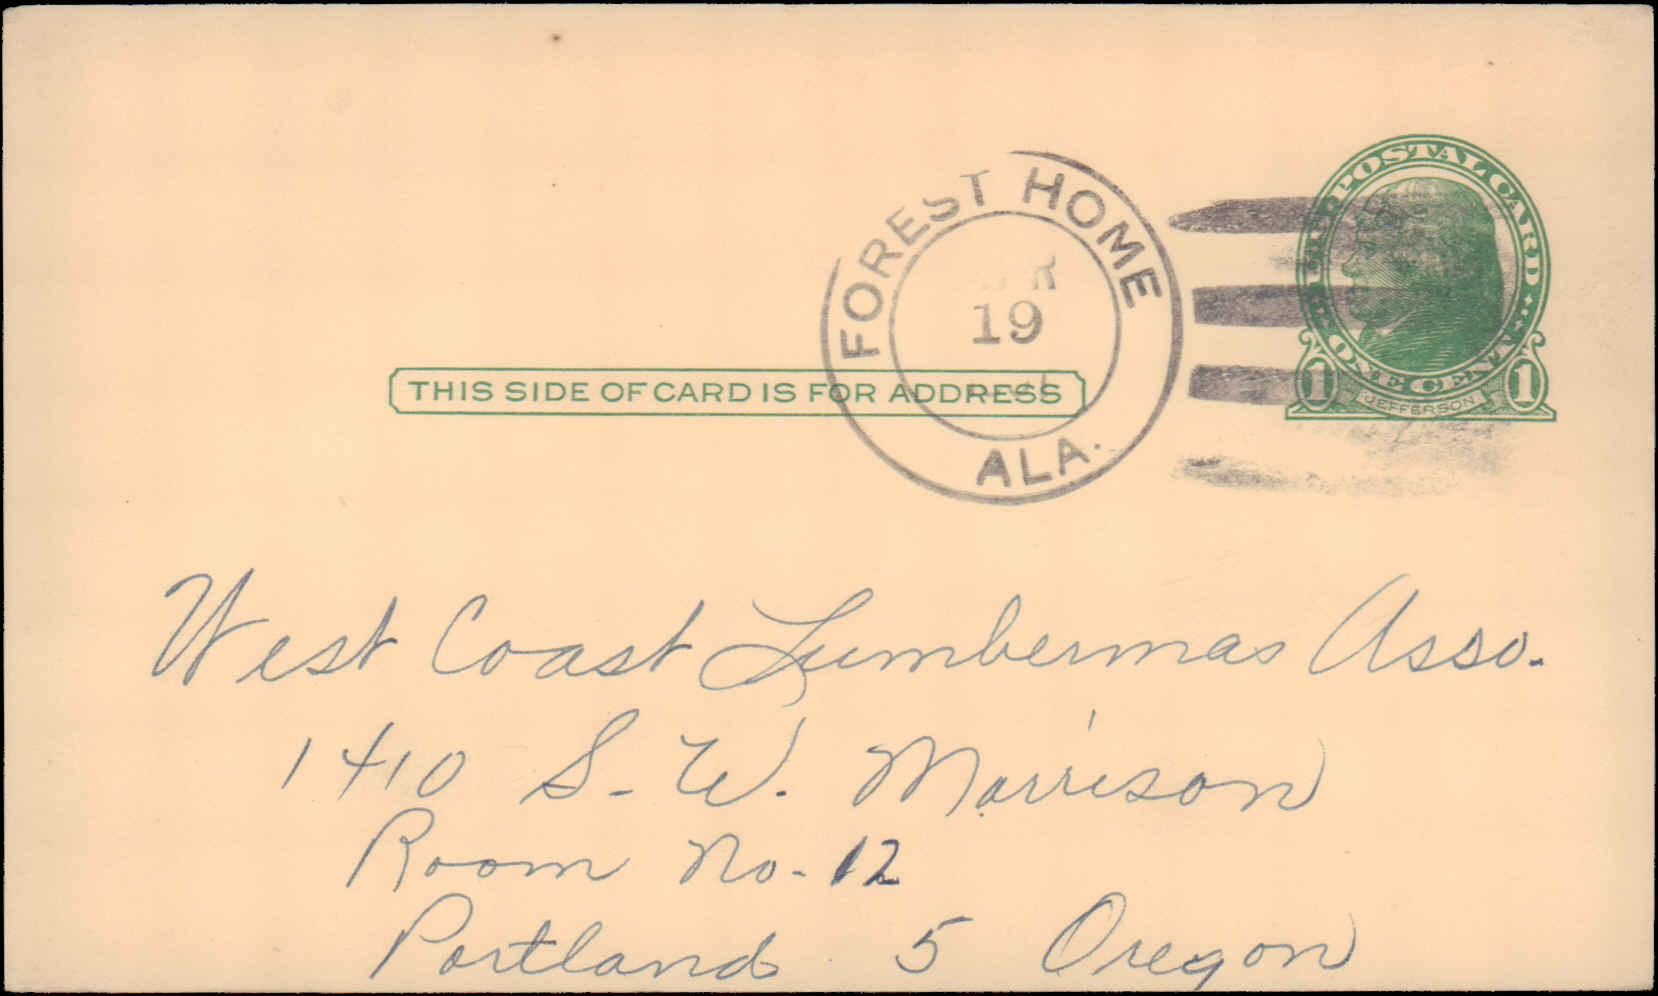 U.S. POSTAL CARD
ONE CENT
1 JEFFERSON 1
FOREST HOME
19
ALA.
THIS SIDE OF CARD IS FOR ADDRESS
West Coast Lumbermas Asso.
1410 S. W. Morrison
Room No. 12
Portland 5 Oregon